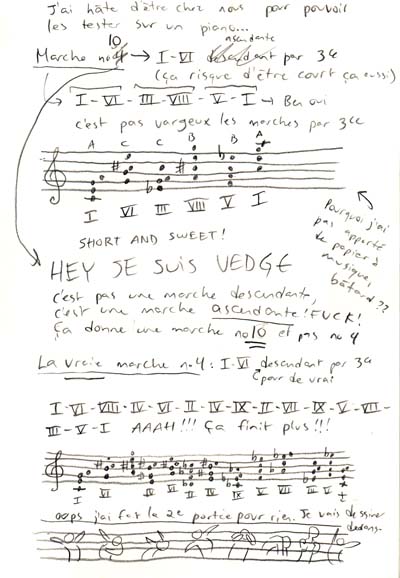 J'ai hâte d'être chez nous pour pouvoir
les tester sur un piano...
ascendante
10
Marche no → I-VI descendant par 3ce
(ça risque d'être court ça aussi)
→ I-VI-III-VIII-V-I → Ben oui
c'est pas vargeux les marches par 3ce
A C C B B A
I VI III VIII V I
SHORT AND SWEET!
Pourquoi j'ai
pas apporté
de papier à
musique,
bâtard??
HEY JE SUIS VEDGE
c'est pas une marche descendante,
c'est une marche ascendante! FUCK!
Ça donne une marche no 10 et pas no 4
La vraie marche no 4: I-VI descendant par 3ce
pour de vrai
I-VI-VIII-IV-VI-II-IV-IX-II-VII-IX-V-VII-
III-V-I AAAH!!! Ça finit plus!!!
oops j'ai fet la 2e portée pour rien. Je vais dessiner
dedans.